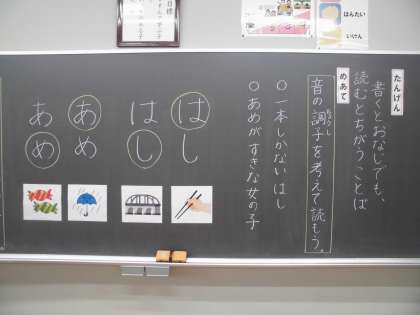 たんげん
書くとおなじでも、
読むとちがうことば
めあて
音の調子を考えて読もう。
ちょうし
○一本しかないはし
○あめがすきな女の子
はし
はし
あめ
あめ
はんたい
いけん